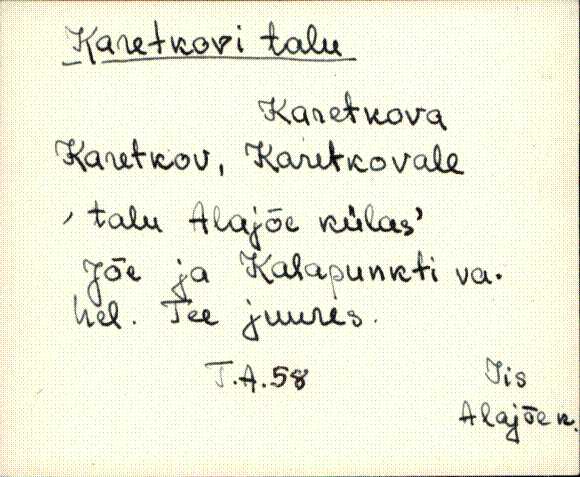 Karetkovi talu
Karetkova
Karetkov, Karetkovale
, talu Alajõe külas'
Jõe ja Kalapunkti va-
hel. Tee juures.
T.A.58
Iis
Alajõe k.